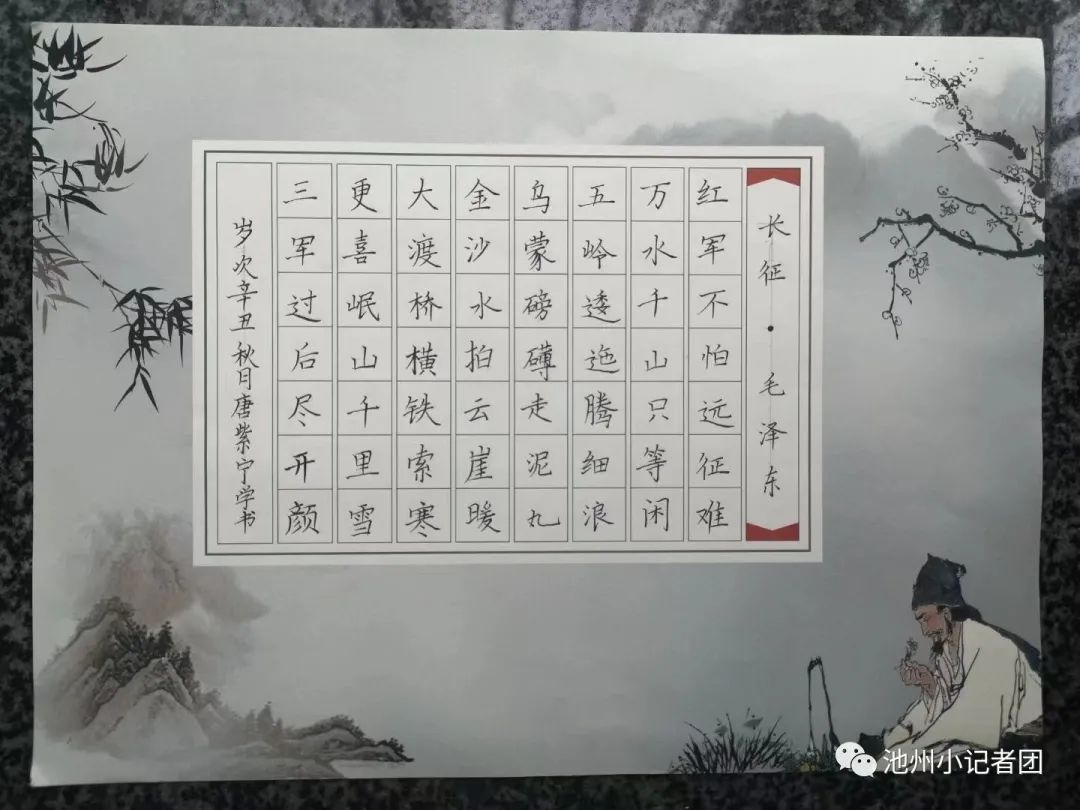 长征·毛泽东
红军不怕远征难
万水千山只等闲
五岭逶迤腾细浪
乌蒙磅礴走泥丸
金沙水拍云崖暖
大渡桥横铁索寒
更喜岷山千里雪
三军过后尽开颜
岁次辛丑秋月唐紫宁学书
池州小记者团